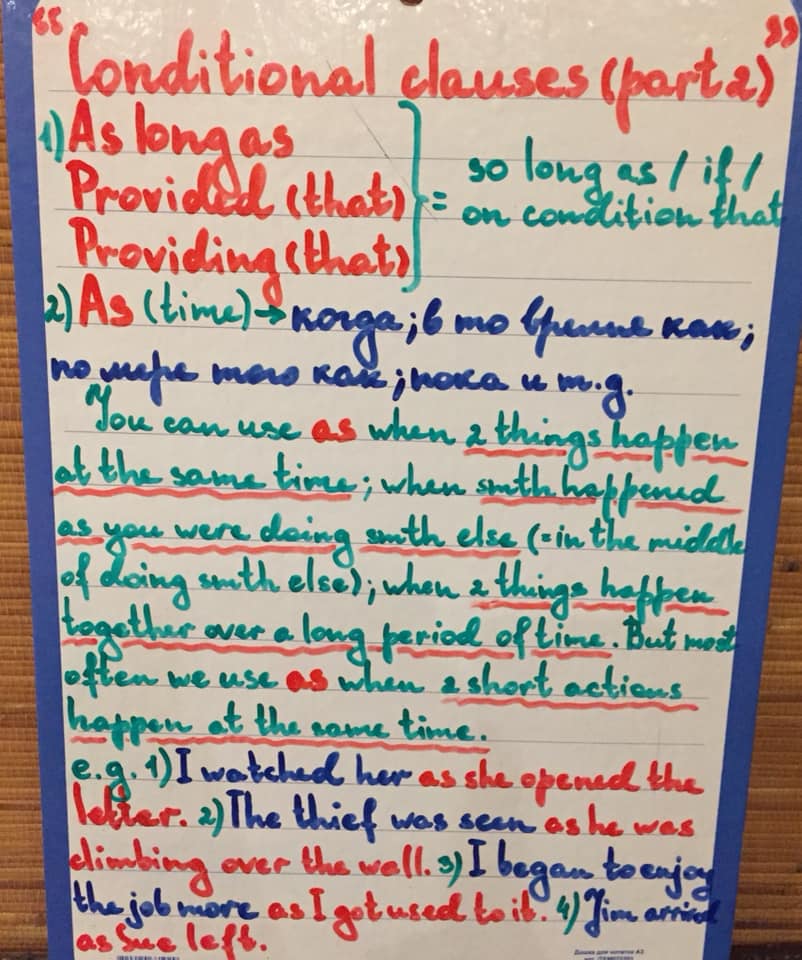 "Conditional clauses (part 2)"
1) As long as
Provided (that)
Providing (that)
} = so long as / if /
on condition that
2) As (time) → когда; в то время как;
по мере того как; пока и т.д.
You can use as when 2 things happen
at the same time; when smth happened
as you were doing smth else (=in the middle
of doing smth else); when 2 things happen
together over a long period of time. But most
often we use as when 2 short actions
happen at the same time.
e.g. 1) I watched her as she opened the
letter. 2) The thief was seen as he was
climbing over the wall. 3) I began to enjoy
the job more as I got used to it. 4) Jim arrived
as Sue left.
Доска для заметок А3